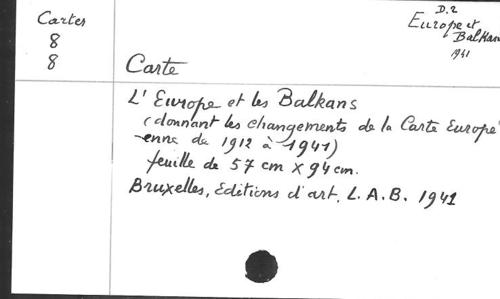 Cartes
8
8
D.2
Europe et
Balkans
1941
Carte
L'Europe et les Balkans
(donnant les changements de la Carte Europé
enne de 1912 à 1941)
feuille de 57 cm X 94 cm.
Bruxelles, Editions d'art, L.A.B. 1941